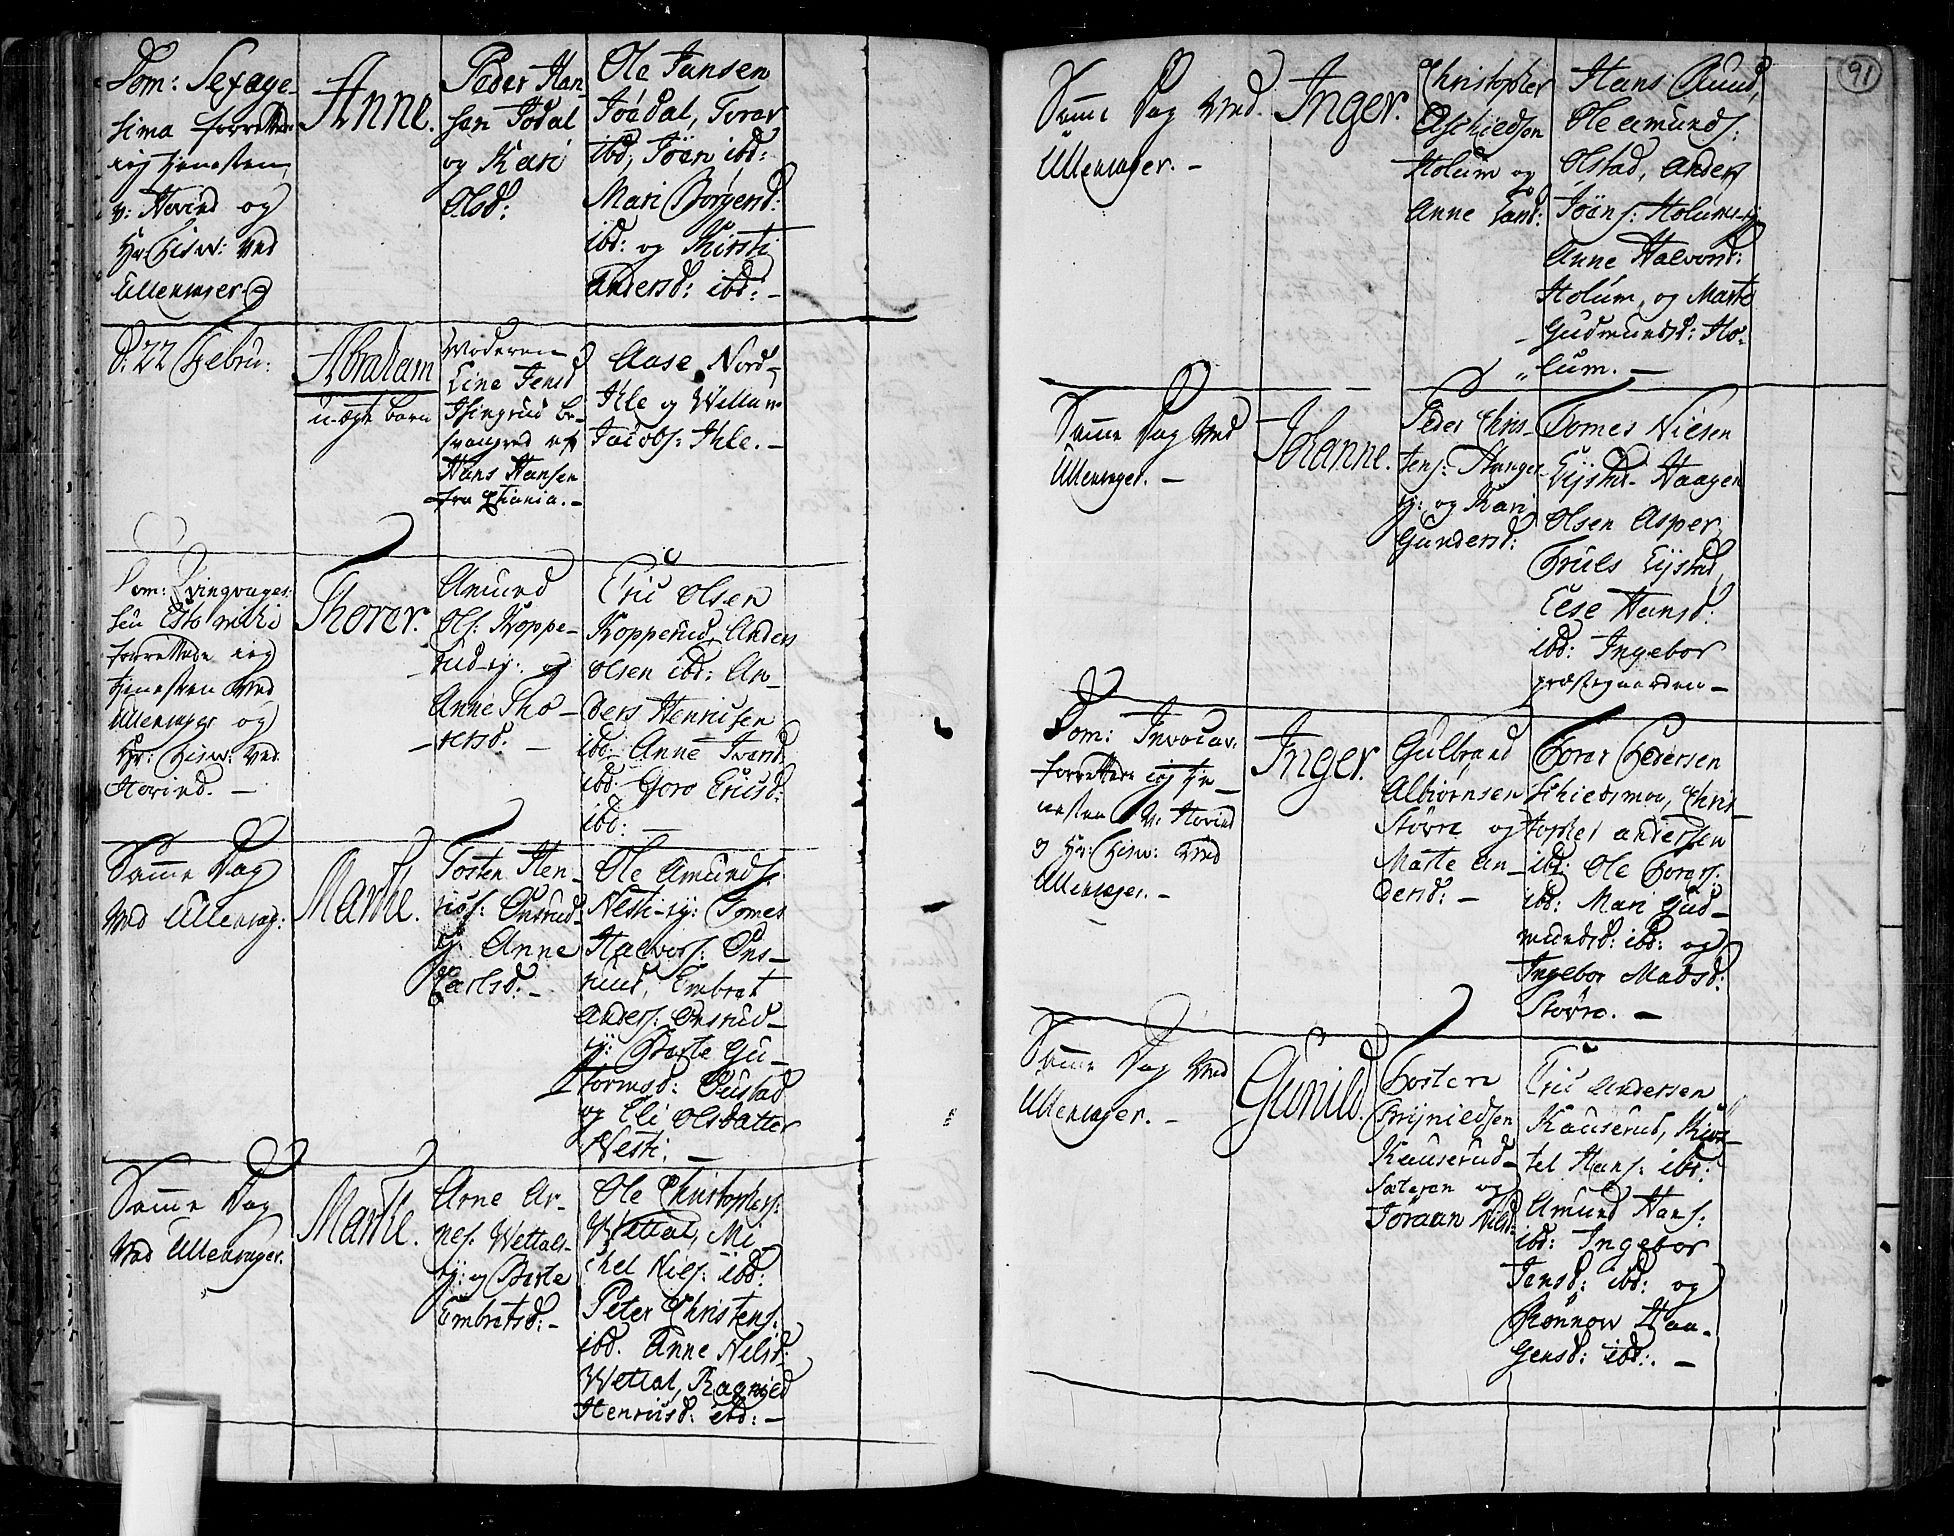 Dom: Sexage-
sima forrettede
ieg tienesten
v: Hovind og
Hr: ved
Ullensager
Anne.
Peder Han-
sen Jödal
og Kari
Olsd:
Ole Jansen
Jödal, Torer
ibd, Jöen ibd:
Mari Börgersd:
ibd: og Kirsti
Andersd: ibd: -
D. 22 Febru:
Abraham
u-ægte barn
Moderen
Line Jensd
be-
svangred af
Hans Hansen
fra Xtiania. -
Aase Nord-
Ihle og Willum
Jacobs: Ihle. -
Dom: Qvinqvages:
seu Esto mihi
forrettede ieg
tienesten ved
Ullensager og
Hr: ved
Hovind. -
Thorer.
Amund
Ols: Koppe-
rud-ej: og
Anne Tho-
rersd: -
Eric Olsen
Kopperud, Anders
Olsen ibd: An-
ders Henrisen
ibd: Anne Iversd:
ibd: Goro Ericsd:
ibd: -
Samme Dag
ved Ullensag:
Marthe.
Tosten Hen-
rics: Onsrud-
ej: Anne
Carlsd: -
Ole Amunds:
Nesti-ej: Tomes
Halvors: Ons-
rud, Embret
Anders: Onsrud-
ej: Berte Gu-
tormsd:
og Eli Olsdatter
Nesti. -
Samme Dag
ved Ullensager.
Marthe.
Arne Ar-
nes: Wettals-
ej: og Berte
Embretsd: -
Ole Christophers:
Wettal, Mi-
chel Niels: ibd:
Peter Christens:
ibd. Anne Nilsd:
Wettal, Ragnild
Henricsd: ibd: -
91
Samme Dag ved
Ullensager. -
Inger.
Christopher
Aschiedsen
Holum og
Anne
Hans Ruud,
Ole Amunds:
Olstad, Anders
Jöens: Holums-ej:
Anne Halvorsd:
Holum, og Marte
Gudmundsd: Ho-
lum. -
Samme Dag ved
Ullensager. -
Johanne.
Peder Chris-
tens: Hanger-
ej: og Kari
Gundersd:
Tomes Nielsen
Eijstad- Haagen
Olsen Asper,
Truls Eijstad,
Lese Hansd:
ibd: Ingebor
præstegaarden -
Dom: Invocav:
forrettede ieg tie-
nesten v: Hovind
og Hr: ved
Ullensager. -
Inger.
Gulbrand
Albiörnsen
Stövre og
Marte An-
dersd: -
Torer Pedersen
Schiedsmoe, Chris-
topher Andersen
ibd: Ole Torers:
ibd: Mari Gud-
mundsd: ibd: og
Ingebor Madsd:
Stövre. -
Samme Dag ved
Ullensager. -
Gunild.
Tosten
Brijnildsen
Kauserud-
Sæteren og
Jöraan Nilsd:
Eric Andersen
Kauserud, Kios-
tel Hans: ibd:
Amund Hans:
ibd: Ingebor
Jensd: ibd: og
Rönnow Haa-
gensd: ibd: -